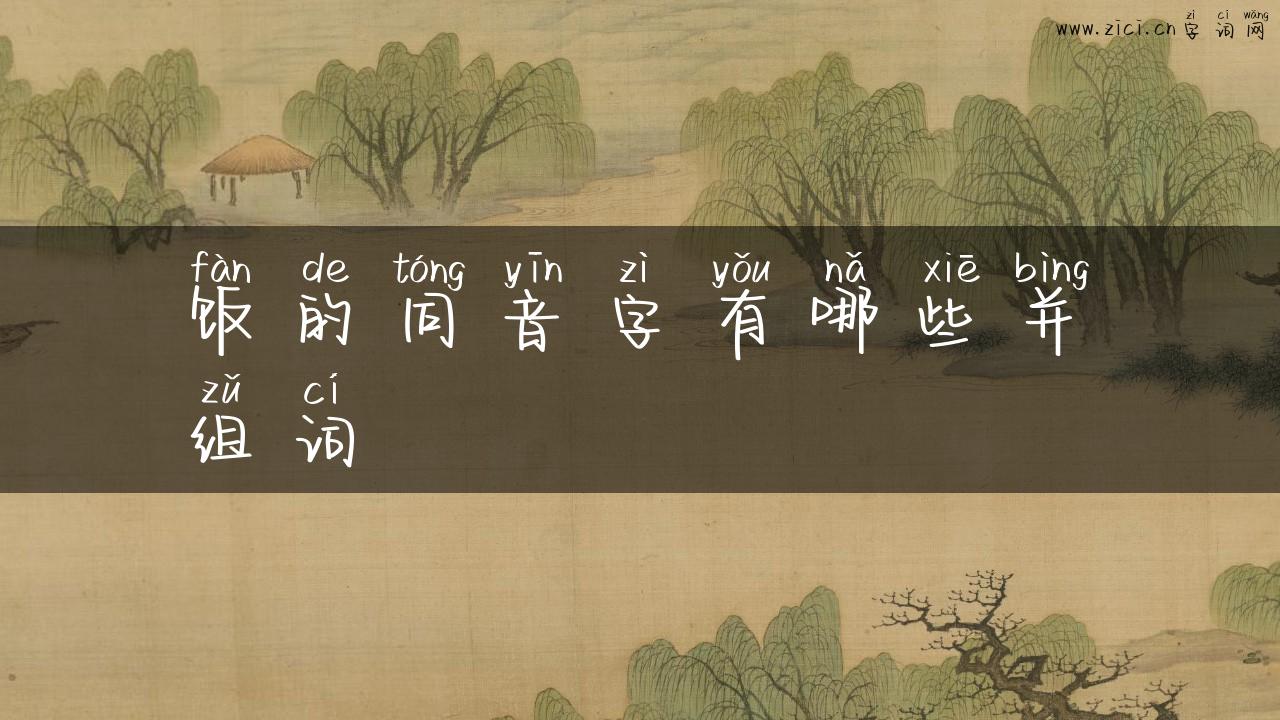 zì cí wǎng
www.zici.cn 字词网
fàn de tóng yīn zì yǒu nǎ xiē bìng
饭的同音字有哪些并
zǔ cí
组词